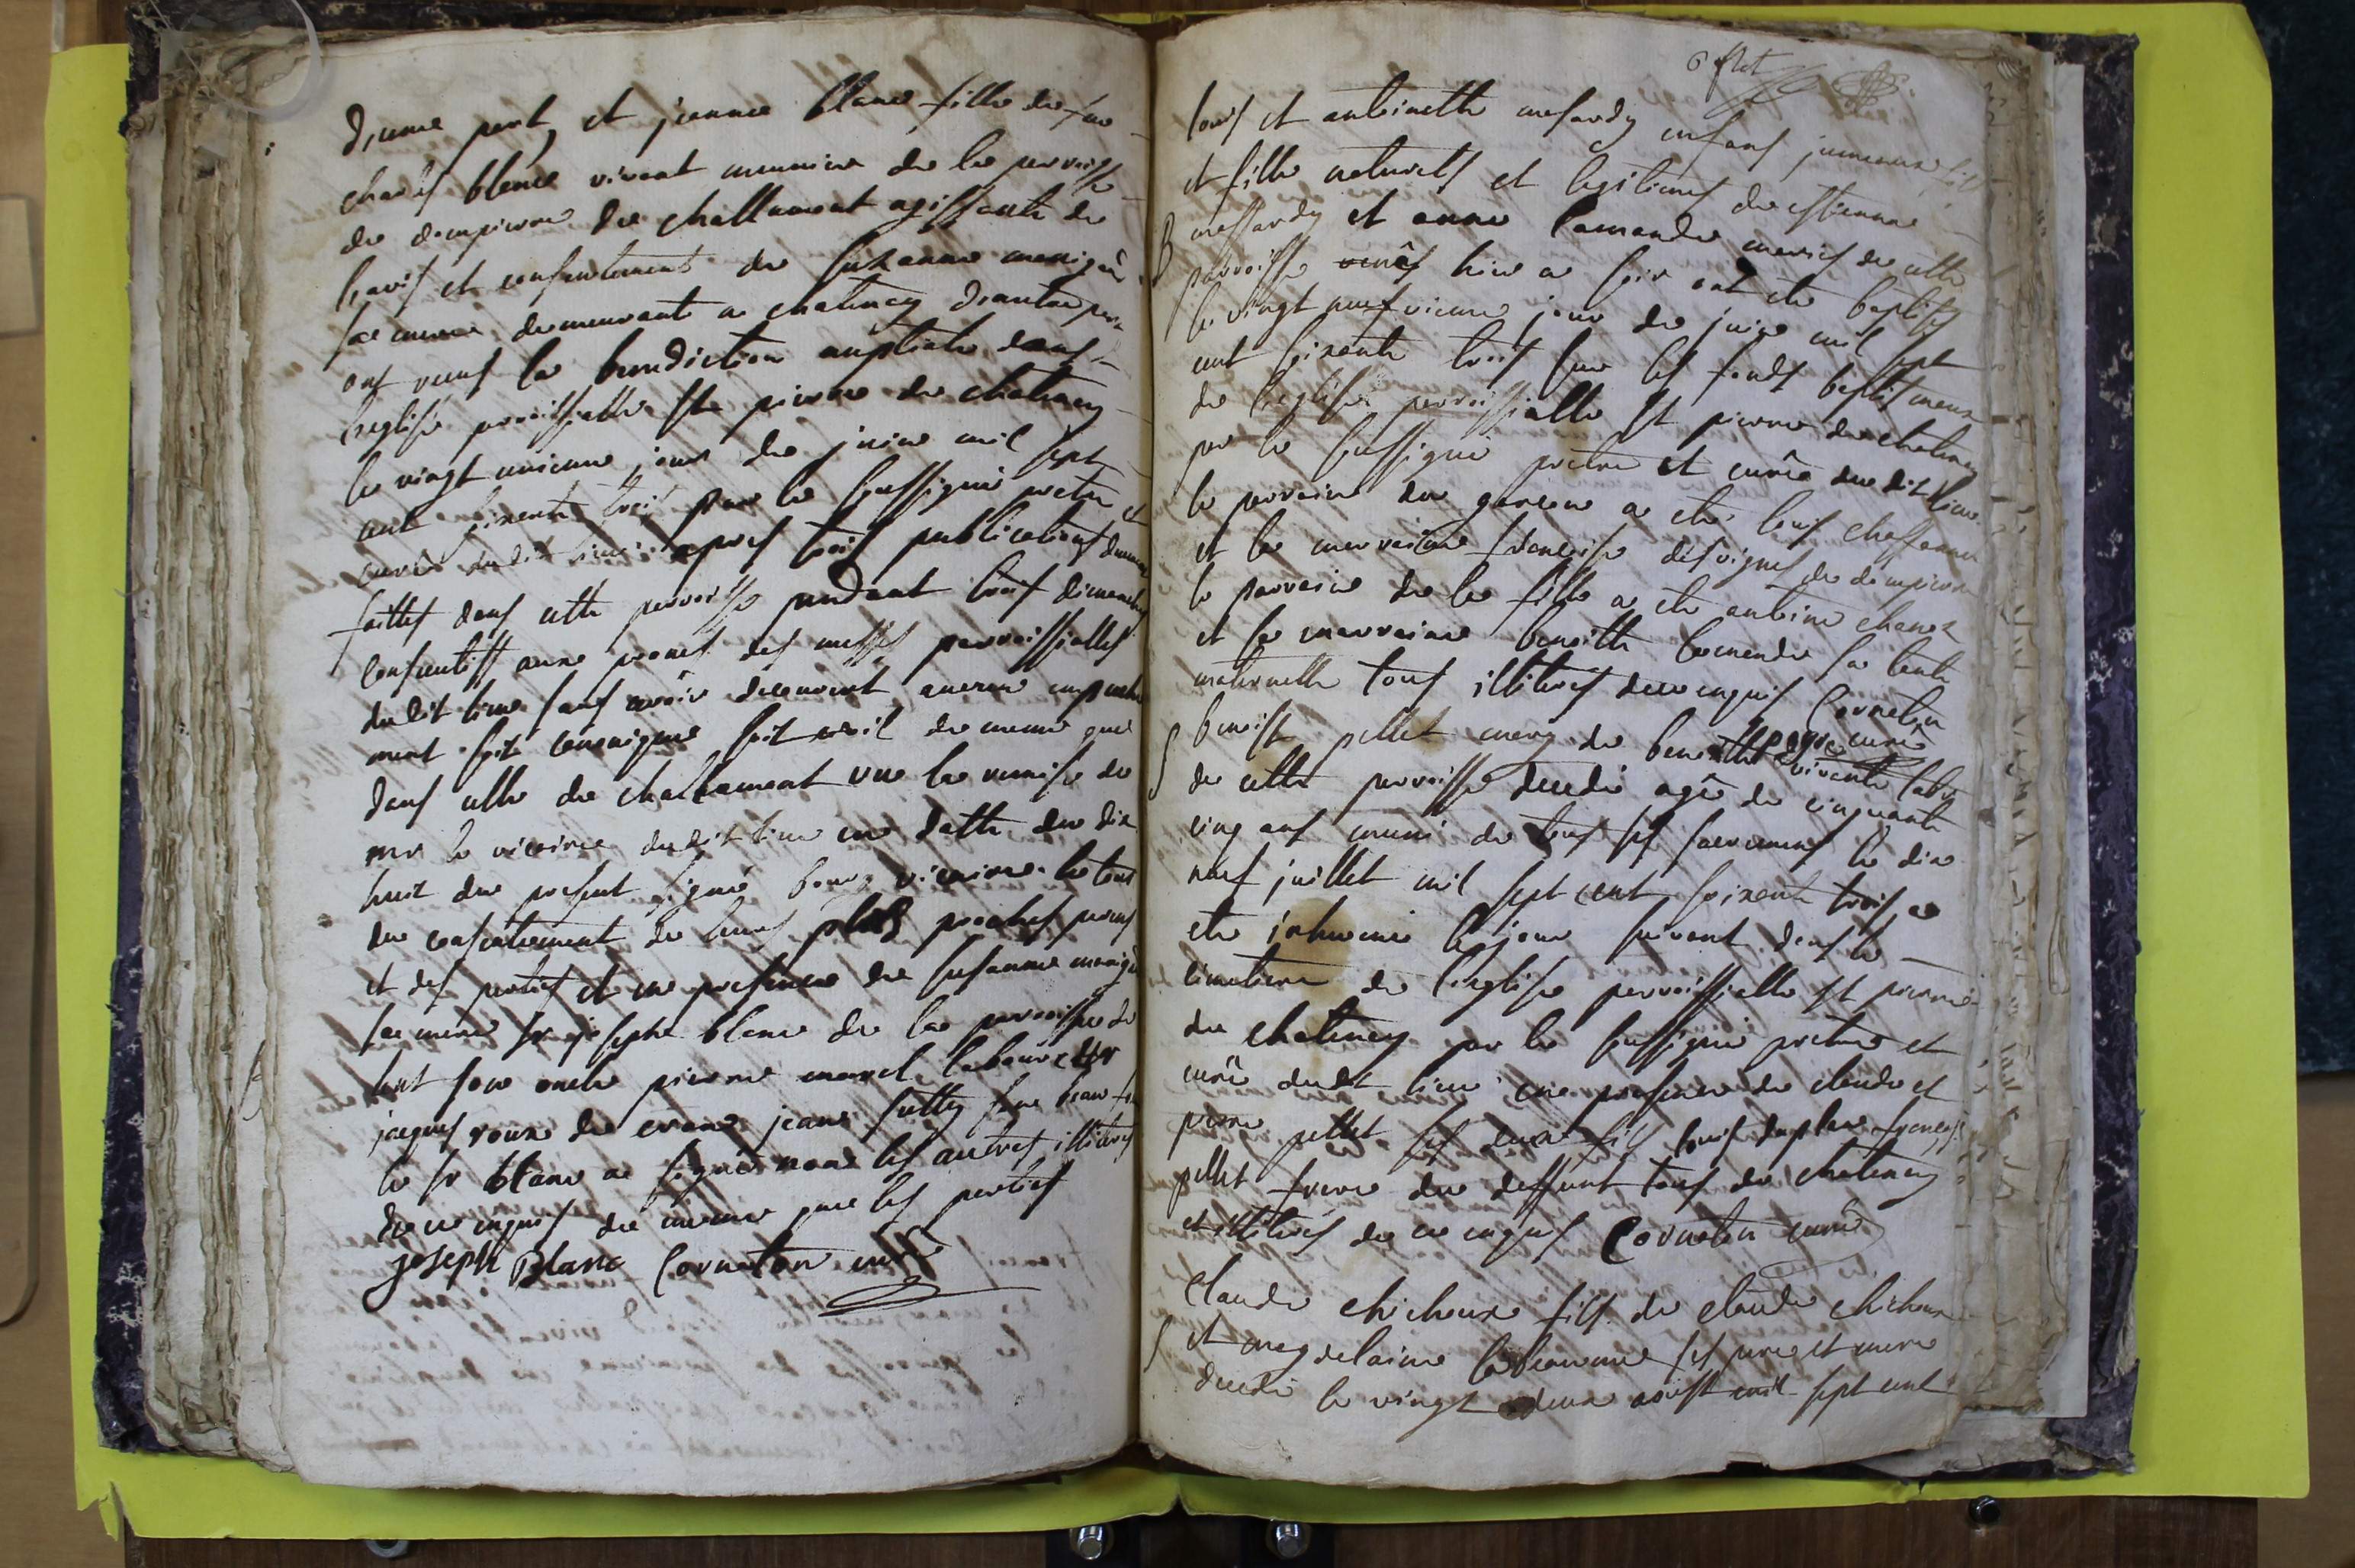 d'une part, et jeanne blanc fille de feu
charles blanc vivant meunier de la parroisse
de dompierre de challamont agissante de
l'avis et consentement de suzanne
sa mere demeurante a chatenay d'autre part
ont receus la benediction nuptiale dans
l'eglise parroissialle st pierre de chatenay
le vingt unieme jour de juin mil sept
cent soixente trois par le soussigné pretre et
curé dudit lieu apres trois publications
faittes dans cette parroisse pendant trois dimanches
consecutifs aux prones des messes parroissialles
dudit lieu sans avoir decouvert aucun empeche
ment soit canonique soit civil de meme que
dans celle de challamont vue la remise de
mr le vicaire dudit lieu en datte du dix
huit du present signé vicaire le tout
du consentement de leurs plus proches parens
et des parties et en presence de susanne
sa mere sr joseph blanc de la parroisse de
son oncle pierre laboureur
jaques roux de crans jean son beau f
le sr blanc a signé non les autres illiteres
de ce enquis de meme que les parties
joseph Blanc Corneton curé
6 flet
louis et antoinette enfans jumeaux fils
et fille naturels et legitimes de estienne
et anne Lamande mariés de cette
parroisse hier a soir ont ete baptisés
le vingt neuvieme jour de juin mil sept
cent soixente trois sur les fonds baptismaux
de l'eglise parroissialle st pierre de chatenay
par le soussigné pretre et curé du dit lieu
le parrain du garcon a ete louis
et la marraine francoise de dompierre
le parrain de la fille a ete antoine
et la marraine benoitte lamande sa tante
maternelle tous illiteres de ce enquis Corneton
curé
benoist pellet mary de benoitte vivante
de cette parroisse decedé agé de cinquante
cinq ans muni de tous ses sacremens le dix
neuf juillet mil sept cent soixente trois a
ete inhumé le jour suivant dans le
cimetiere de l'eglise parroissialle st pierre
de chatenay par le soussigné pretre et
curé dudt lieu en presence de claude et
pierre pellet ses deux fils louis duplan francois
pellet frere du deffunt tous de chatenay
et illiteres de ce enquis Corneton curé
Claude chicheux fils de claude chicheux
et magdelaine ses pere et mere
decedé le vingt deux aoust mil sept cent